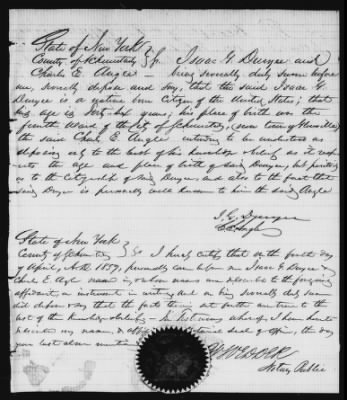 State of New York
County of Schenectady } ss. Isaac G. Duryee and
Charles E. Angle being severally duly sworn before
me, severally depose and say, that the said Isaac G.
Duryee is a native born Citizen of the United States; that
his age is forty-six years; his place of birth was the
fourth Ward of the City of Schenectady, (now town of Glenville)
the said Charles E. Angle intending to be understood as
deposing only to the best of his knowledge & belief as it respects
the age and place of birth of said Duryee, but positively as
to the Citizenship of said Duryee, and also to the fact that
said Duryee is personally well known to him the said Angle
I. G. Duryee
C. E. Angle
State of New York
County of Schenectady } ss I hereby certify that on the fourth day
of April, A.D. 1857, personally came before me Isaac G. Duryee &
Charles E. Angle whose names are subscribed to the foregoing
affidavit, or instrument in writing and on being severally duly sworn
did depose & say that the facts therein set forth are true to the
best of their knowledge & belief. In testimony whereof, I have hereunto
subscribed my name, & affixed my notarial seal of office, the day
& year last above written
Notary Public